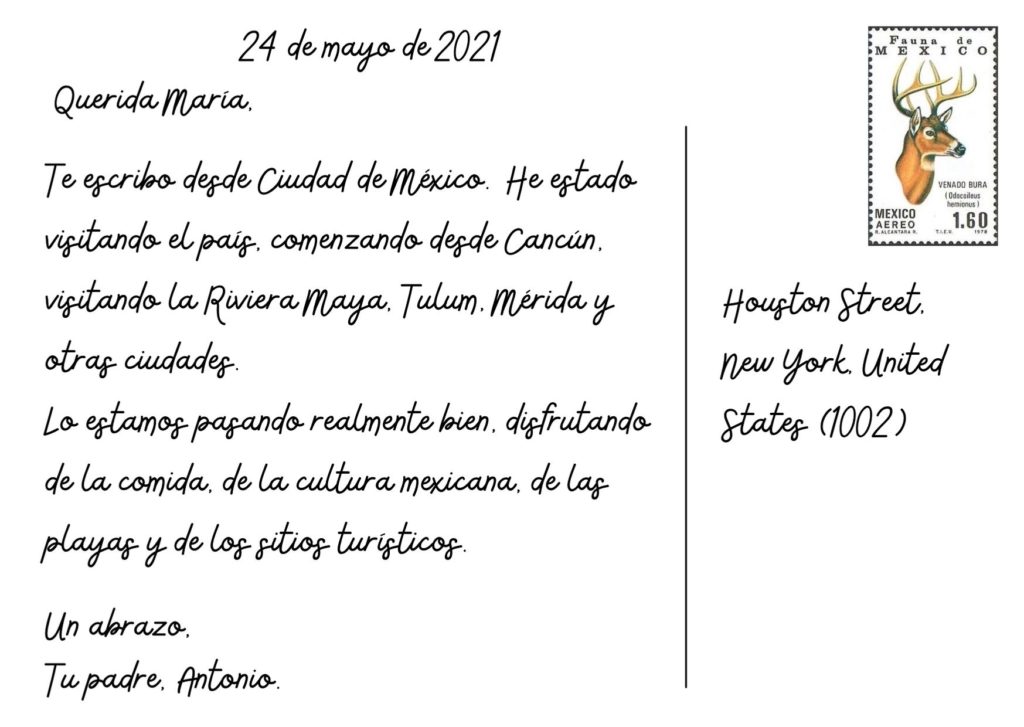 24 de mayo de 2021
Querida María,
Te escribo desde Ciudad de México. He estado
visitando el país, comenzando desde Cancún,
visitando la Riviera Maya, Tulum, Mérida y
otras ciudades.
Lo estamos pasando realmente bien, disfrutando
de la comida, de la cultura mexicana, de las
playas y de los sitios turísticos.
Un abrazo,
Tu padre, Antonio.
Fauna de
MEXICO
VENADO BURA
(Odocoileus
hemionus)
MEXICO
AEREO 1.60
R. ALCANTARA R. T.I.E.V. 1978
Houston Street,
New York, United
States (1002)